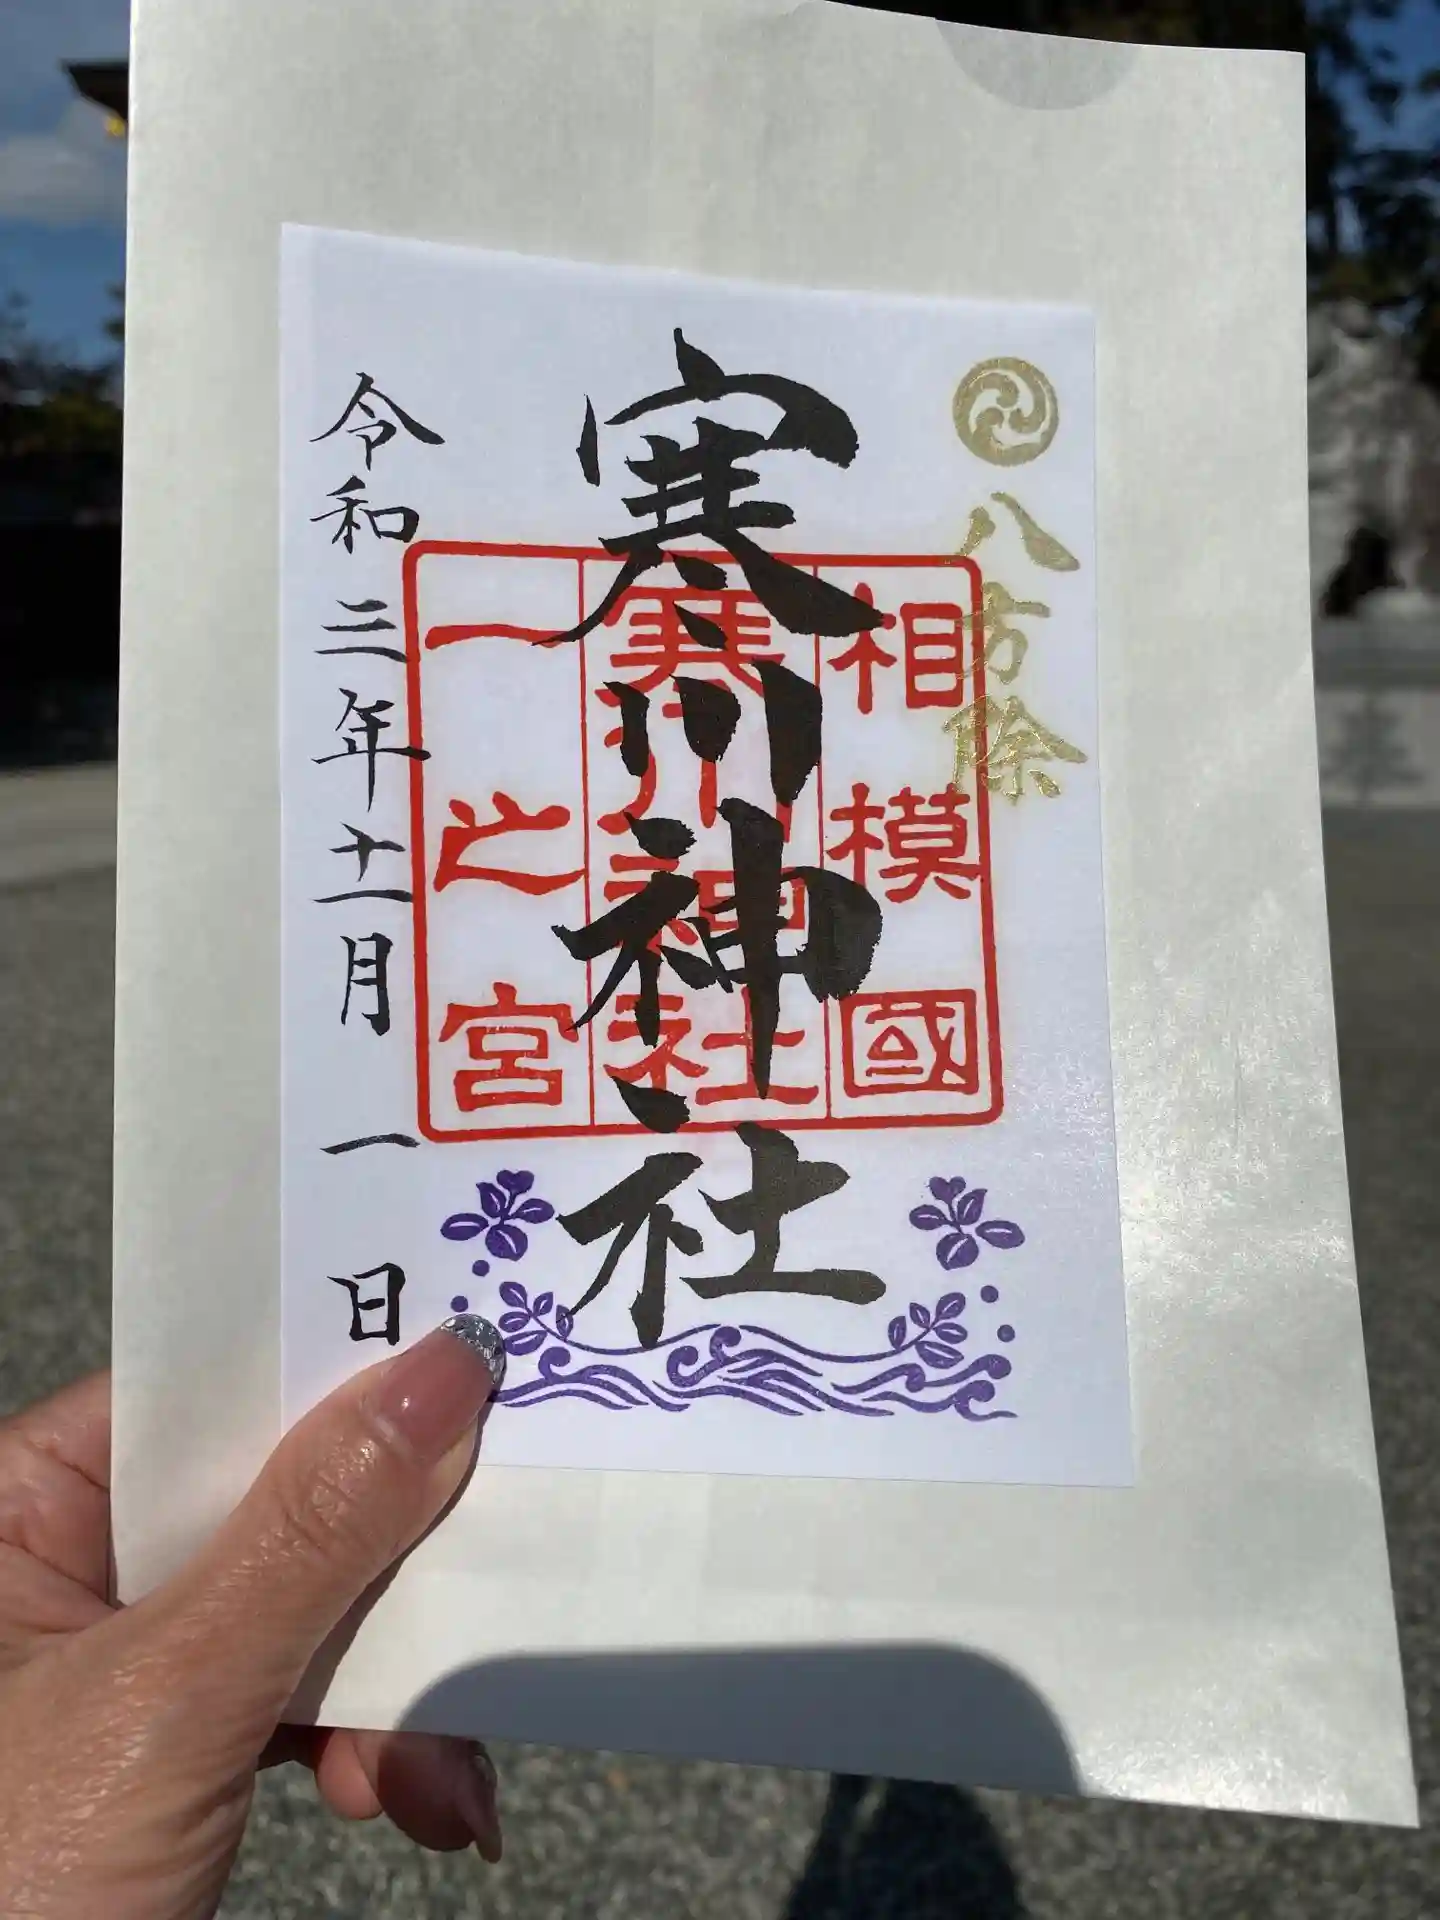 八方除
寒川神社
相模國
寒川神社
一之宮
令和三年十一月一日